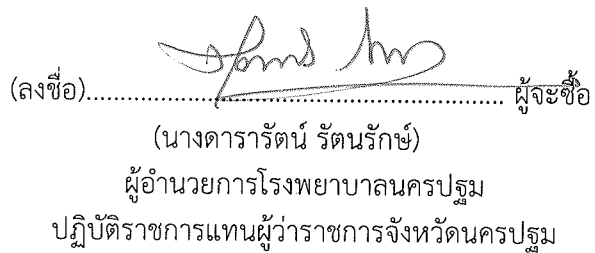 (ลงชื่อ)............................................................ ผู้จะซื้อ
(นางดารารัตน์ รัตนรักษ์)
ผู้อำนวยการโรงพยาบาลนครปฐม
ปฏิบัติราชการแทนผู้ว่าราชการจังหวัดนครปฐม